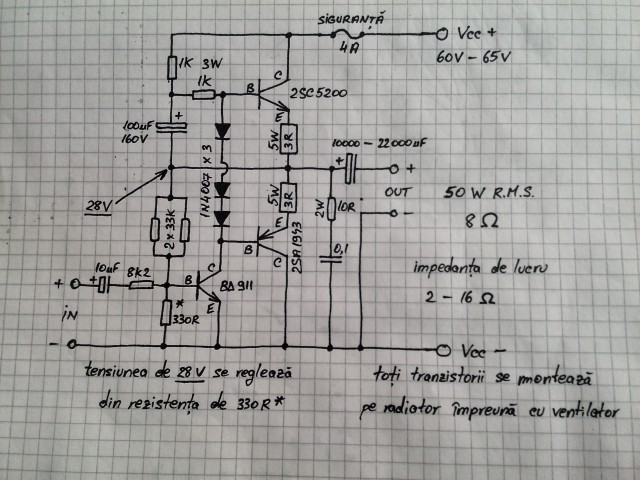 SIGURANȚĂ
4A
Vcc +
60V – 65V
1K 3W
1K
B
C
2SC5200
E
+
100uF
160V
5W
3R
10000 – 22000uF
+
+
OUT
–
1N4007 x 3
28V
2 x 33K
5W
3R
2W
10R
50 W R.M.S.
8 Ω
E
B
C
2SA1943
0,1
impedanța de lucru
2 – 16 Ω
+
10uF
+
8k2
B
C
BD911
E
iN
*
330R
–
Vcc –
tensiunea de 28V se reglează
din rezistența de 330R*
toți tranzistorii se montează
pe radiator împreună cu ventilator